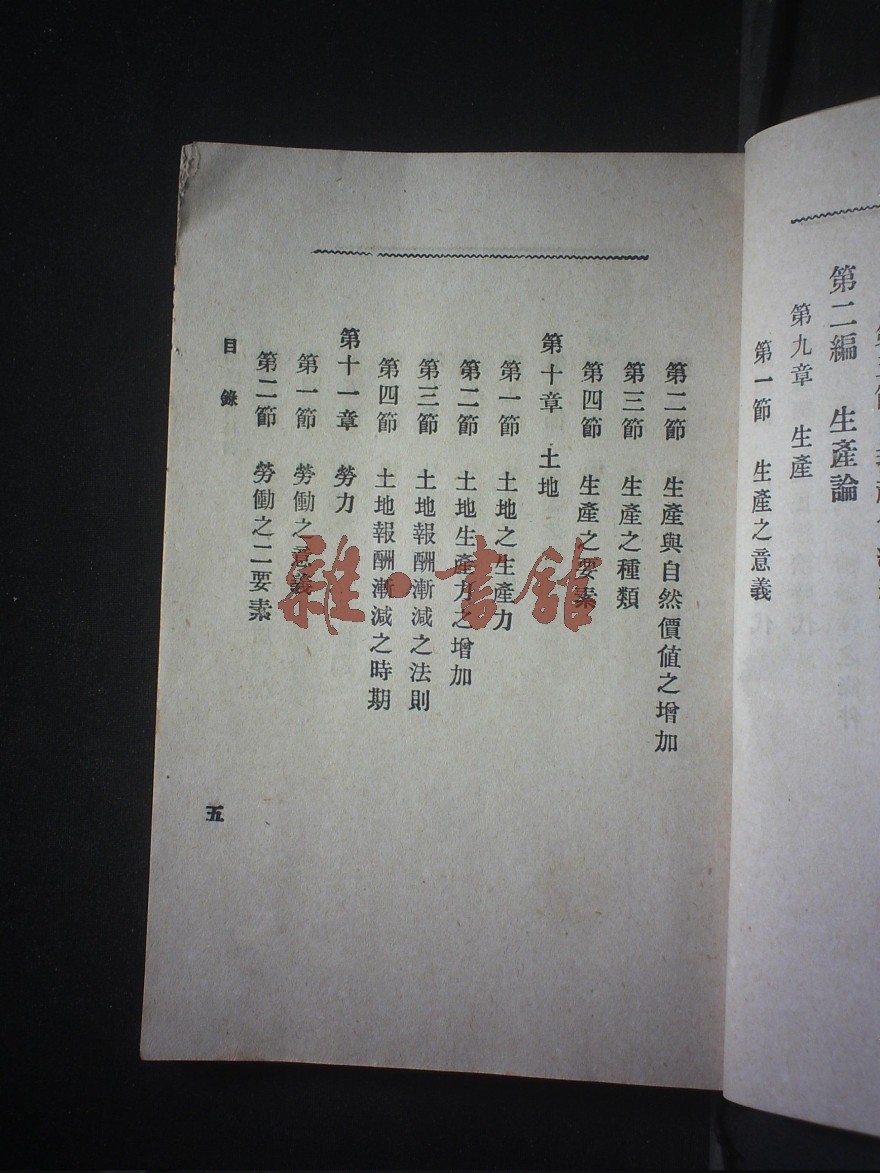 第二編 生產論
第九章 生產
第一節 生產之意義
第二節 生產與自然價値之增加
第三節 生產之種類
第四節 生產之要素
第十章 土地
第一節 土地之生產力
第二節 土地生產力之增加
第三節 土地報酬漸減之法則
第四節 土地報酬漸減之時期
第十一章 勞力
第一節 勞働之意義
第二節 勞働之二要素
目錄
五
雜·書館